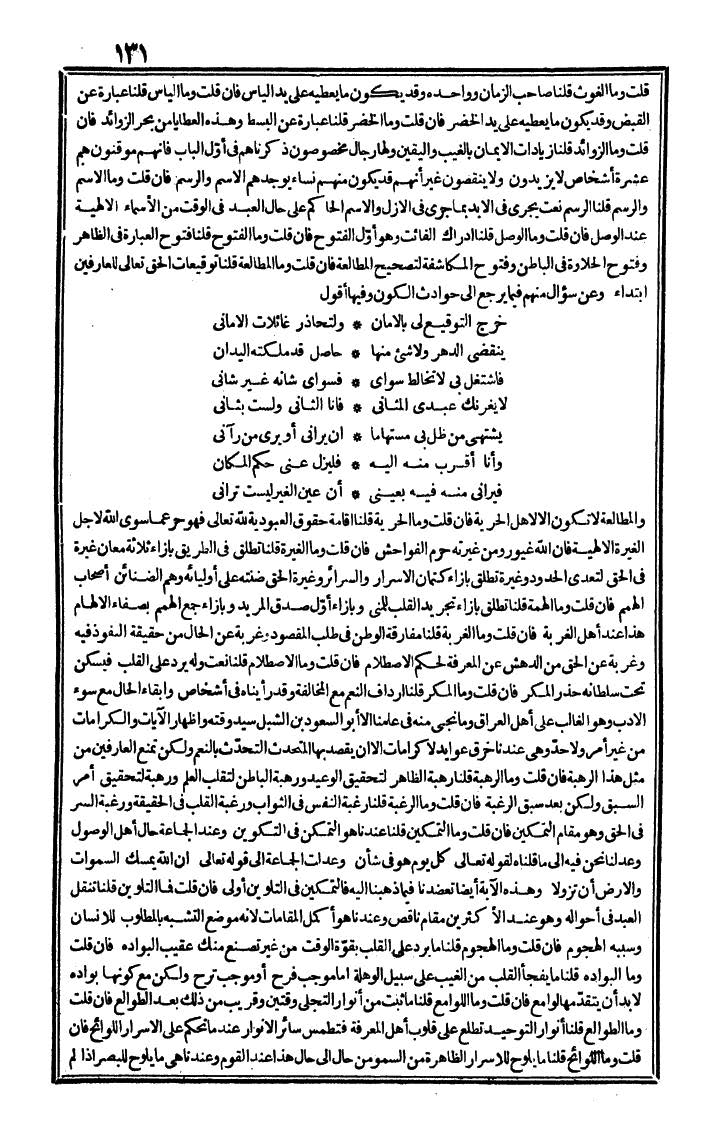 ١٣١
قلت وما الغوث قلنا صاحب الزمان وواحده وقد يكون ما يعطيه على يد الياس فان قلت وما الياس قلنا عبارة عن
القبض وقد يكون ما يعطيه على يد الخضر فان قلت وما الخضر قلنا عبارة عن البسط وهذه العطايا من بحر الزوائد فان
قلت وما الزوائد قلنا زيادات الايمان بالغيب واليقين ولها رجال مخصوصون ذكرناهم فى أول الباب فانهم موقنون هم
عشرة أشخاص لا يزيدون ولا ينقصون غير أنهم قد يكون منهم نساء يوجدهم الاسم والرسم فان قلت وما الاسم
والرسم قلنا الرسم نعت يجرى فى الابد بما جرى فى الازل والاسم الحاكم على حال العبد فى الوقت من الأسماء الالهية
عند الوصل فان قلت وما الوصل قلنا ادراك الفائت وهو أول الفتوح فان قلت وما الفتوح قلنا فتوح العبارة فى الظاهر
وفتوح الحلاوة فى الباطن وفتوح المكاشفة لتصحيح المطالعة فان قلت وما المطالعة قلنا توقيعات الحق تعالى للعارفين
ابتداء وعن سؤال منهم فيما يرجع الى حوادث الكون وفيها أقول
خرج التوقيع لى بالامان * ولتحاذر غائلات الامانى
ينقضى الدهر ولا شئ منها * حاصل قد ملكته اليدان
فاشتغل بى لا تخالط سواى * فسواى شانه غير شانى
لا يغرنك عبدى المثانى * فانا الثانى ولست بثانى
يشتهى من ظل بى مستهاما * ان يرانى أو يرى من رآنى
وأنا أقرب منه اليه * فليزل عنى حكم المكان
فيرانى منه فيه بعينى * أن عين الغير ليست ترانى
والمطالعة لا تكون الا لاهل الحرية فان قلت وما الحرية قلنا اقامة حقوق العبودية لله تعالى فهو حر عما سوى الله لاجل
الغيرة الالهية فان الله غيور ومن غيرته حرم الفواحش فان قلت وما الغيرة قلنا تطلق فى الطريق بازاء ثلاثة معان غيرة
فى الحق لتعدى الحدود وغيرة تطلق بازاء كتمان الاسرار والسرائر وغيرة الحق ضنته على أوليائه وهم الضنائن أصحاب
الهمم فان قلت وما الهمة قلنا تطلق بازاء تجريد القلب للمنى وبازاء أول صدق المريد وبازاء جمع الهمم بصفاء الالهام
هذا عند أهل الغربة فان قلت وما الغربة قلنا مفارقة الوطن فى طلب المقصود وغربة عن الحال من حقيقة النفوذ فيه
وغربة عن الحق من الدهش عن المعرفة لحكم الاصطلام فان قلت وما الاصطلام قلنا نعت وله يرد على القلب فيسكن
تحت سلطانه حذر المكر فان قلت وما المكر قلنا ارداف النعم مع المخالفة وقد رأيناه فى أشخاص وابقاء الحال مع سوء
الادب وهو الغالب على أهل العراق وما نجى منه فى علمنا الا أبو السعود بن الشبل سيد وقته واظهار الآيات والكرامات
من غير أمر ولا حد وهى عندنا خرق عوايد لا كرامات الا ان يقصد بها المتحدث التحدث بالنعم ولكن تمنع العارفين من
مثل هذا الرهبة فان قلت وما الرهبة قلنا رهبة الظاهر لتحقيق الوعيد ورهبة الباطن لتقلب العلم ورهبة لتحقيق أمر
السبق ولكن بعد سبق الرغبة فان قلت وما الرغبة قلنا رغبة النفس فى الثواب ورغبة القلب فى الحقيقة ورغبة السر
فى الحق وهو مقام التمكين فان قلت وما التمكين قلنا عندنا هو التمكن فى التكوين وعند الجماعة حال أهل الوصول
وعدلنا نحن فيه الى ما قلناه لقوله تعالى كل يوم هو فى شأن وعدلت الجماعة الى قوله تعالى ان الله يمسك السموات
والارض أن تزولا وهذه الآية أيضا تعضدنا فيما ذهبنا اليه فالتمكين فى التلوين أولى فان قلت فما التلوين قلنا تنقل
العبد فى أحواله وهو عند الأكثرين مقام ناقص وعندنا هو أكمل المقامات لانه موضع التشبه بالمطلوب للانسان
وسببه الهجوم فان قلت وما الهجوم قلنا ما يرد على القلب بقوة الوقت من غير تصنع منك عقيب البواده فان قلت
وما البواده قلنا ما يفجأ القلب من الغيب على سبيل الوهلة اما موجب فرح أو موجب ترح ولكن مع كونها بواده
لا بد أن يتقدمها لوامع فان قلت وما اللوامع قلنا ما ثبت من أنوار التجلى وقتين وقريب من ذلك بعد الطوالع فان قلت
وما الطوالع قلنا أنوار التوحيد تطلع على قلوب أهل المعرفة فتطمس سائر الانوار عند ما تحكم على الاسرار اللوائح فان
قلت وما اللوائح قلنا ما يلوح للاسرار الظاهرة من السمو من حال الى حال هذا عند القوم وعندنا هى ما يلوح للبصر اذا لم